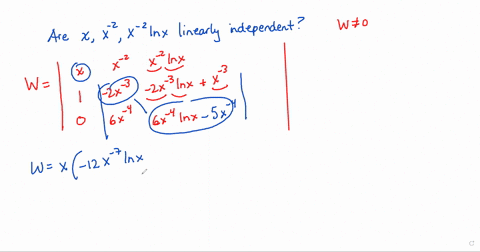 Are x, x⁻², x⁻² ln x linearly independent? W≠0
W = | x x⁻² x⁻² ln x |
1 -2x⁻³ -2x⁻³ ln x + x⁻³
0 6x⁻⁴ 6x⁻⁴ ln x - 5x⁻⁴
W = x ( -12x⁻⁷ ln x